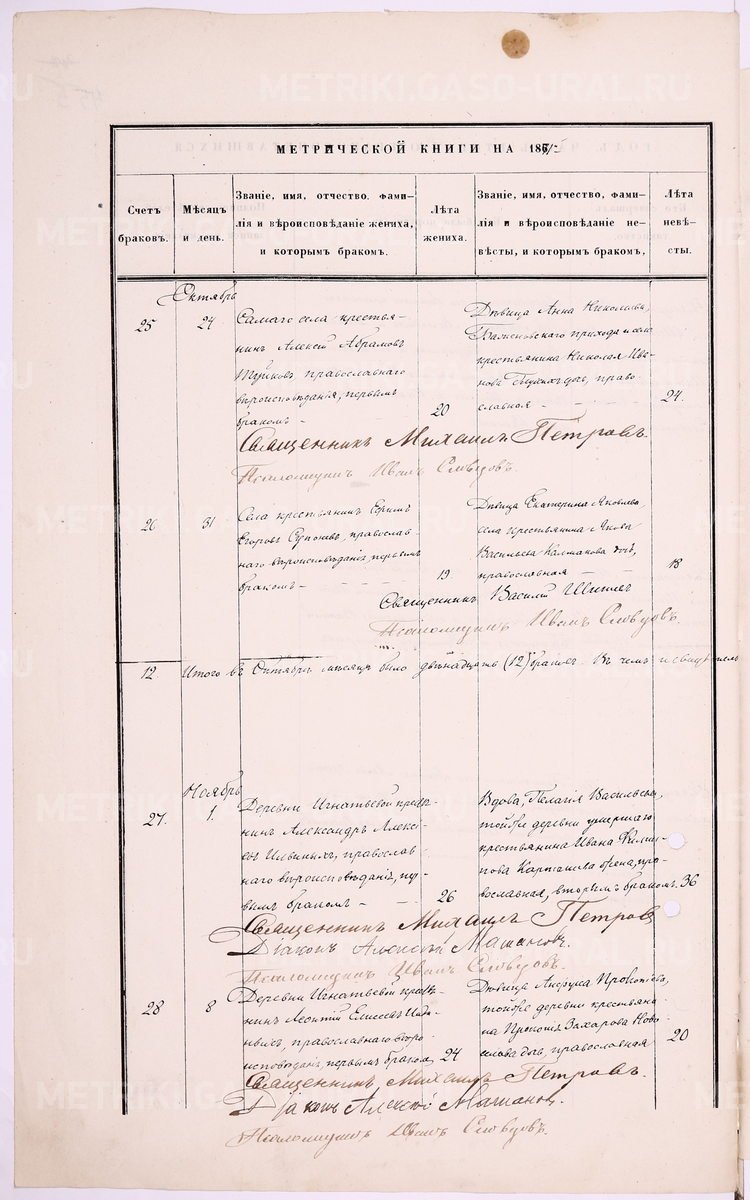 METRIKI.GASO-URAL.RU
МЕТРИЧЕСКОЙ КНИГИ НА 1875
Счетъ браковъ.
Мѣсяцъ и день.
Званіе, имя, отчество. фами-
лія и вѣроисповѣданіе жениха,
и которымъ бракомъ.
Лѣта жениха.
Званіе, имя, отчество, фами-
лія и вѣроисповѣданіе не-
вѣсты, и которымъ бракомъ,
Лѣта невѣ-
сты.
Октябрь
25
24
Самаго села крестья-
нинъ Алексій Абрамовъ
православнаго
вѣроисповѣданія, первымъ
бракомъ
20
Дѣвица Анна Николаева,
прихода и села
крестьянина Николая Ива-
нова дочь, право-
славная
24.
Священникъ Михаилъ Петровъ.
Псаломщикъ Иванъ Словцовъ.
26
31
Села крестьянинъ Ефимъ
Егоровъ православ-
наго вѣроисповѣданія, первымъ
бракомъ
19
Дѣвица Екатерина Яковлева,
села крестьянина Якова
Васильева Калмакова дочь,
православная
18
Священникъ Василій
Псаломщикъ Иванъ Словцовъ.
12
Итого въ Октябрѣ мѣсяцѣ было двѣнадцать (12) браковъ. Въ чемъ и свидѣтель
Ноябрь
27.
1.
Деревни Игнатьевой крестья-
нинъ Александръ Алексѣ-
евъ православ-
наго вѣроисповѣданія, пер-
вымъ бракомъ
26
Вдова, Пелагія Васильева,
тойже деревни умершаго
крестьянина Ивана Филип-
пова жена, пра-
вославная, вторымъ бракомъ.
36
Священникъ Михаилъ Петровъ
Діаконъ Алексій Машановъ.
Псаломщикъ Иванъ Словцовъ.
28
8
Деревни Игнатьевой крестья-
нинъ Леонтій Елисеевъ
православнаго вѣро-
исповѣданія, первымъ бракомъ
24
Дѣвица Прокопіева,
тойже деревни крестьяни-
на Прокопія Захарова Ново-
селова дочь, православная
20
Священникъ Михаилъ Петровъ.
Діаконъ Алексій Машановъ.
Псаломщикъ Иванъ Словцовъ.